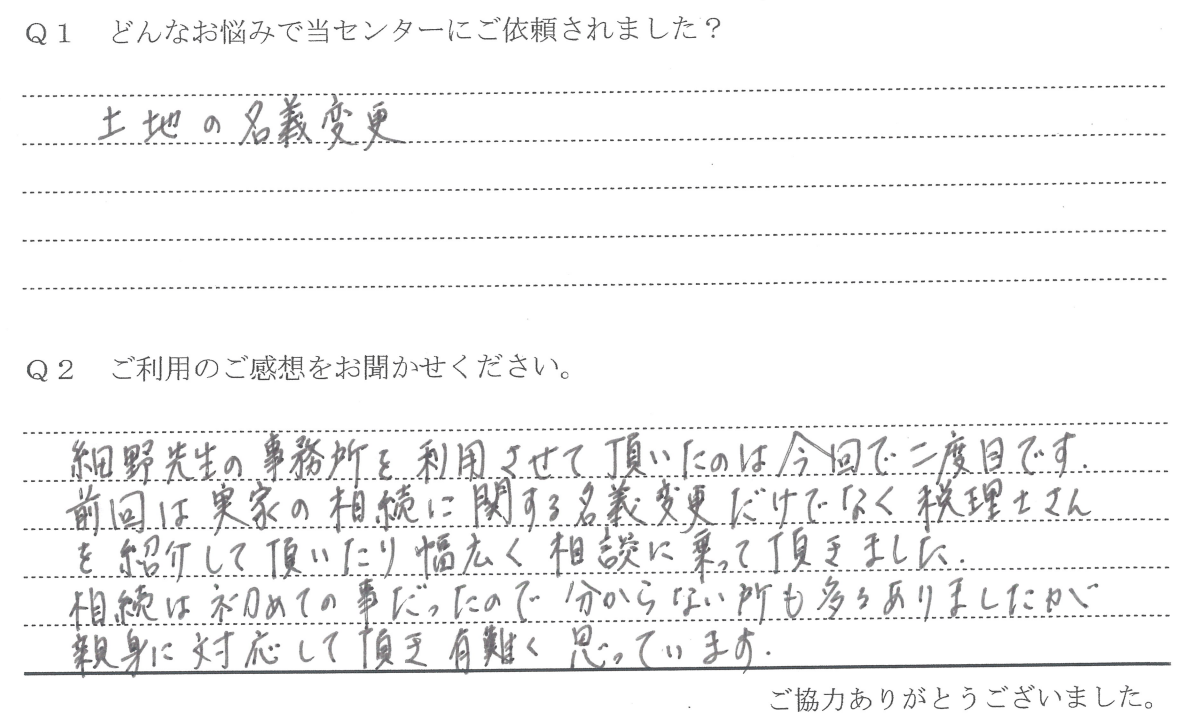 Q1 どんなお悩みで当センターにご依頼されました？
土地の名義変更
Q2 ご利用のご感想をお聞かせください。
細野先生の事務所を利用させて頂いたのは今回で二度目です.
前回は実家の相続に関する名義変更だけでなく税理士さん
を紹介して頂いたり幅広く相談に乗って頂きました.
相続は初めての事だったので分からない所も多々ありましたが
親身に対応して頂き有難く思っています.
ご協力ありがとうございました。